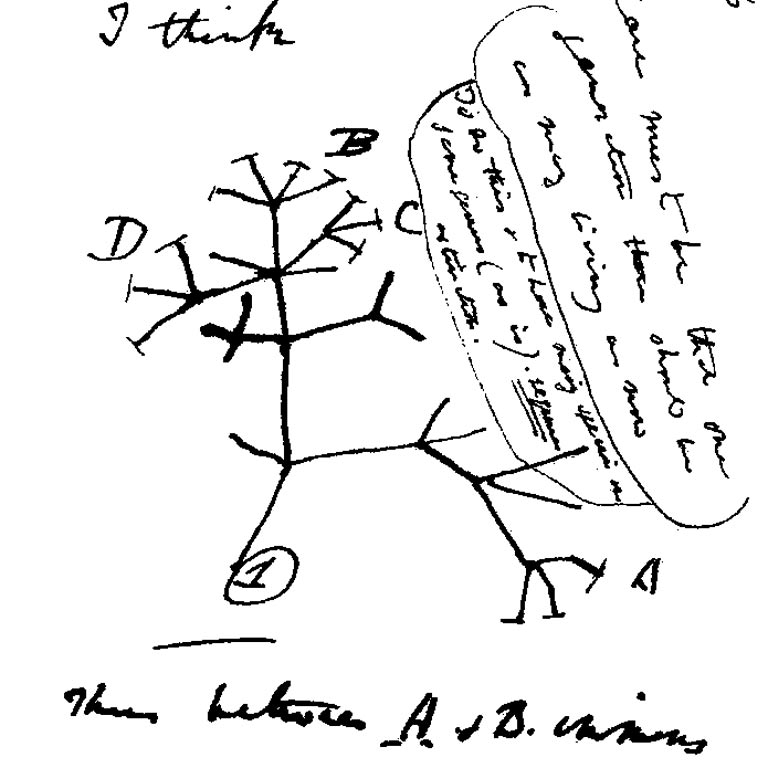 I think
B
D
C
1
A
case must be that one
generation then should be
as many living as now
To do this & to have many species in
same genus (as is). requires
extinction.
Thus between A & B. immens